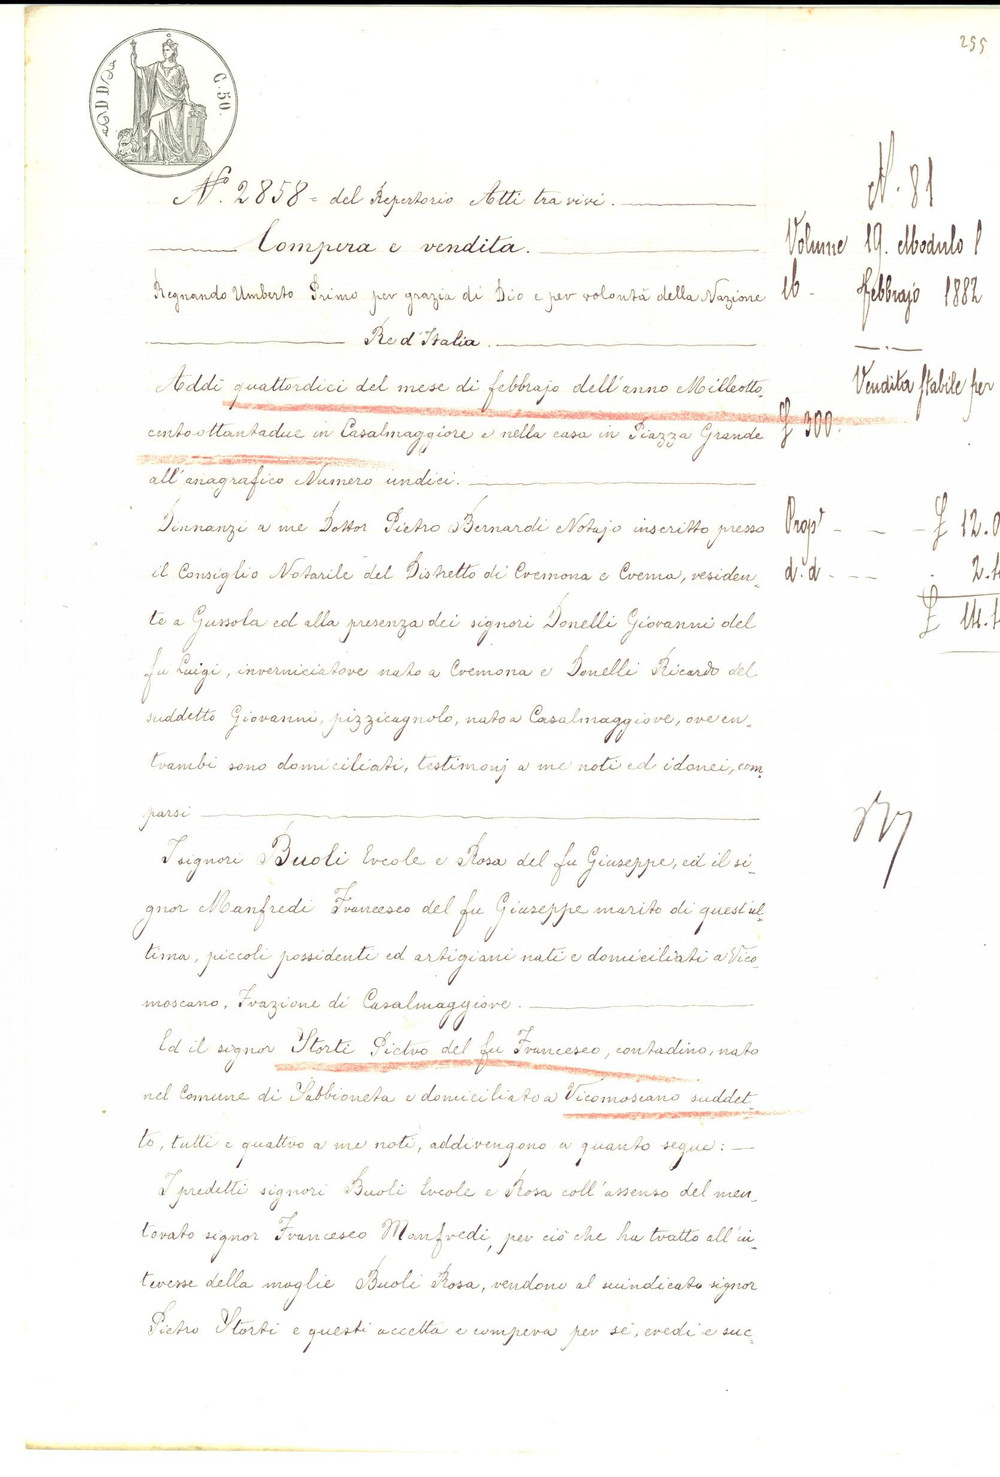 255
C. 50.
N.° 2858 = del Repertorio Atti tra vivi.
Compera e vendita.
Regnando Umberto Primo per grazia di Dio e per volontà della Nazione
Re d'Italia.
Addì quattordici del mese di febbrajo dell'anno Milleotto-
centoottantadue in Casalmaggiore e nella casa in Piazza Grande
all'anagrafico Numero undici.
Dinnanzi a me Dottor Pietro Bernardi Notajo inscritto presso
il Consiglio Notarile del Distretto di Cremona e Crema, residen-
te a Gussola ed alla presenza dei signori Donelli Giovanni del
fu Luigi, inverniciatore nato a Cremona e Donelli Riccardo del
suddetto Giovanni, pizzicagnolo, nato a Casalmaggiore, ove en-
trambi sono domiciliati, testimonj a me noti ed idonei, com-
parsi
I signori Buoli Ercole e Rosa del fu Giuseppe, ed il si-
gnor Manfredi Francesco del fu Giuseppe marito di quest'ul-
tima, piccoli possidenti ed artigiani nati e domiciliati a Vico-
moscano, Frazione di Casalmaggiore.
Ed il signor Storti Pietro del fu Francesco, contadino, nato
nel Comune di Sabbioneta e domiciliato a Vicomoscano suddet-
to, tutti e quattro a me noti, addivengono a quanto segue:
I predetti signori Buoli Ercole e Rosa coll'assenso del men-
tovato signor Francesco Manfredi, per ciò che ha tratto all'in-
teresse della moglie Buoli Rosa, vendono al suindicato signor
Pietro Storti e questi accetta e compera per sè, eredi e suc-
N. 81
Volume 19. Modulo 1
16 - Febbrajo 1882
Vendita stabile per
£ 300.
Prop.le - - - £ 12.0
d. d. - - - 2.4
£ 14.4